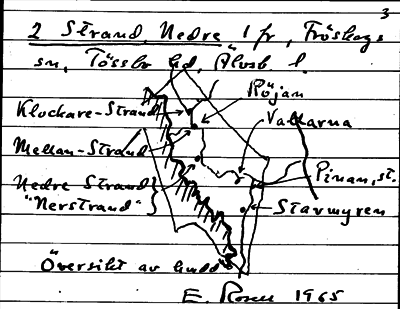 3
2 Strand, Nedre, 1 fr, Fröskogs
sn, Tössbo hd, Älvsb l.
Röjan
Klockare-Strand
Vallarna
Mellan-Strand
Pinan, st.
Nedre Strand
"Nerstrand"
Starmyren
Översikt av
E. Rosell 1965